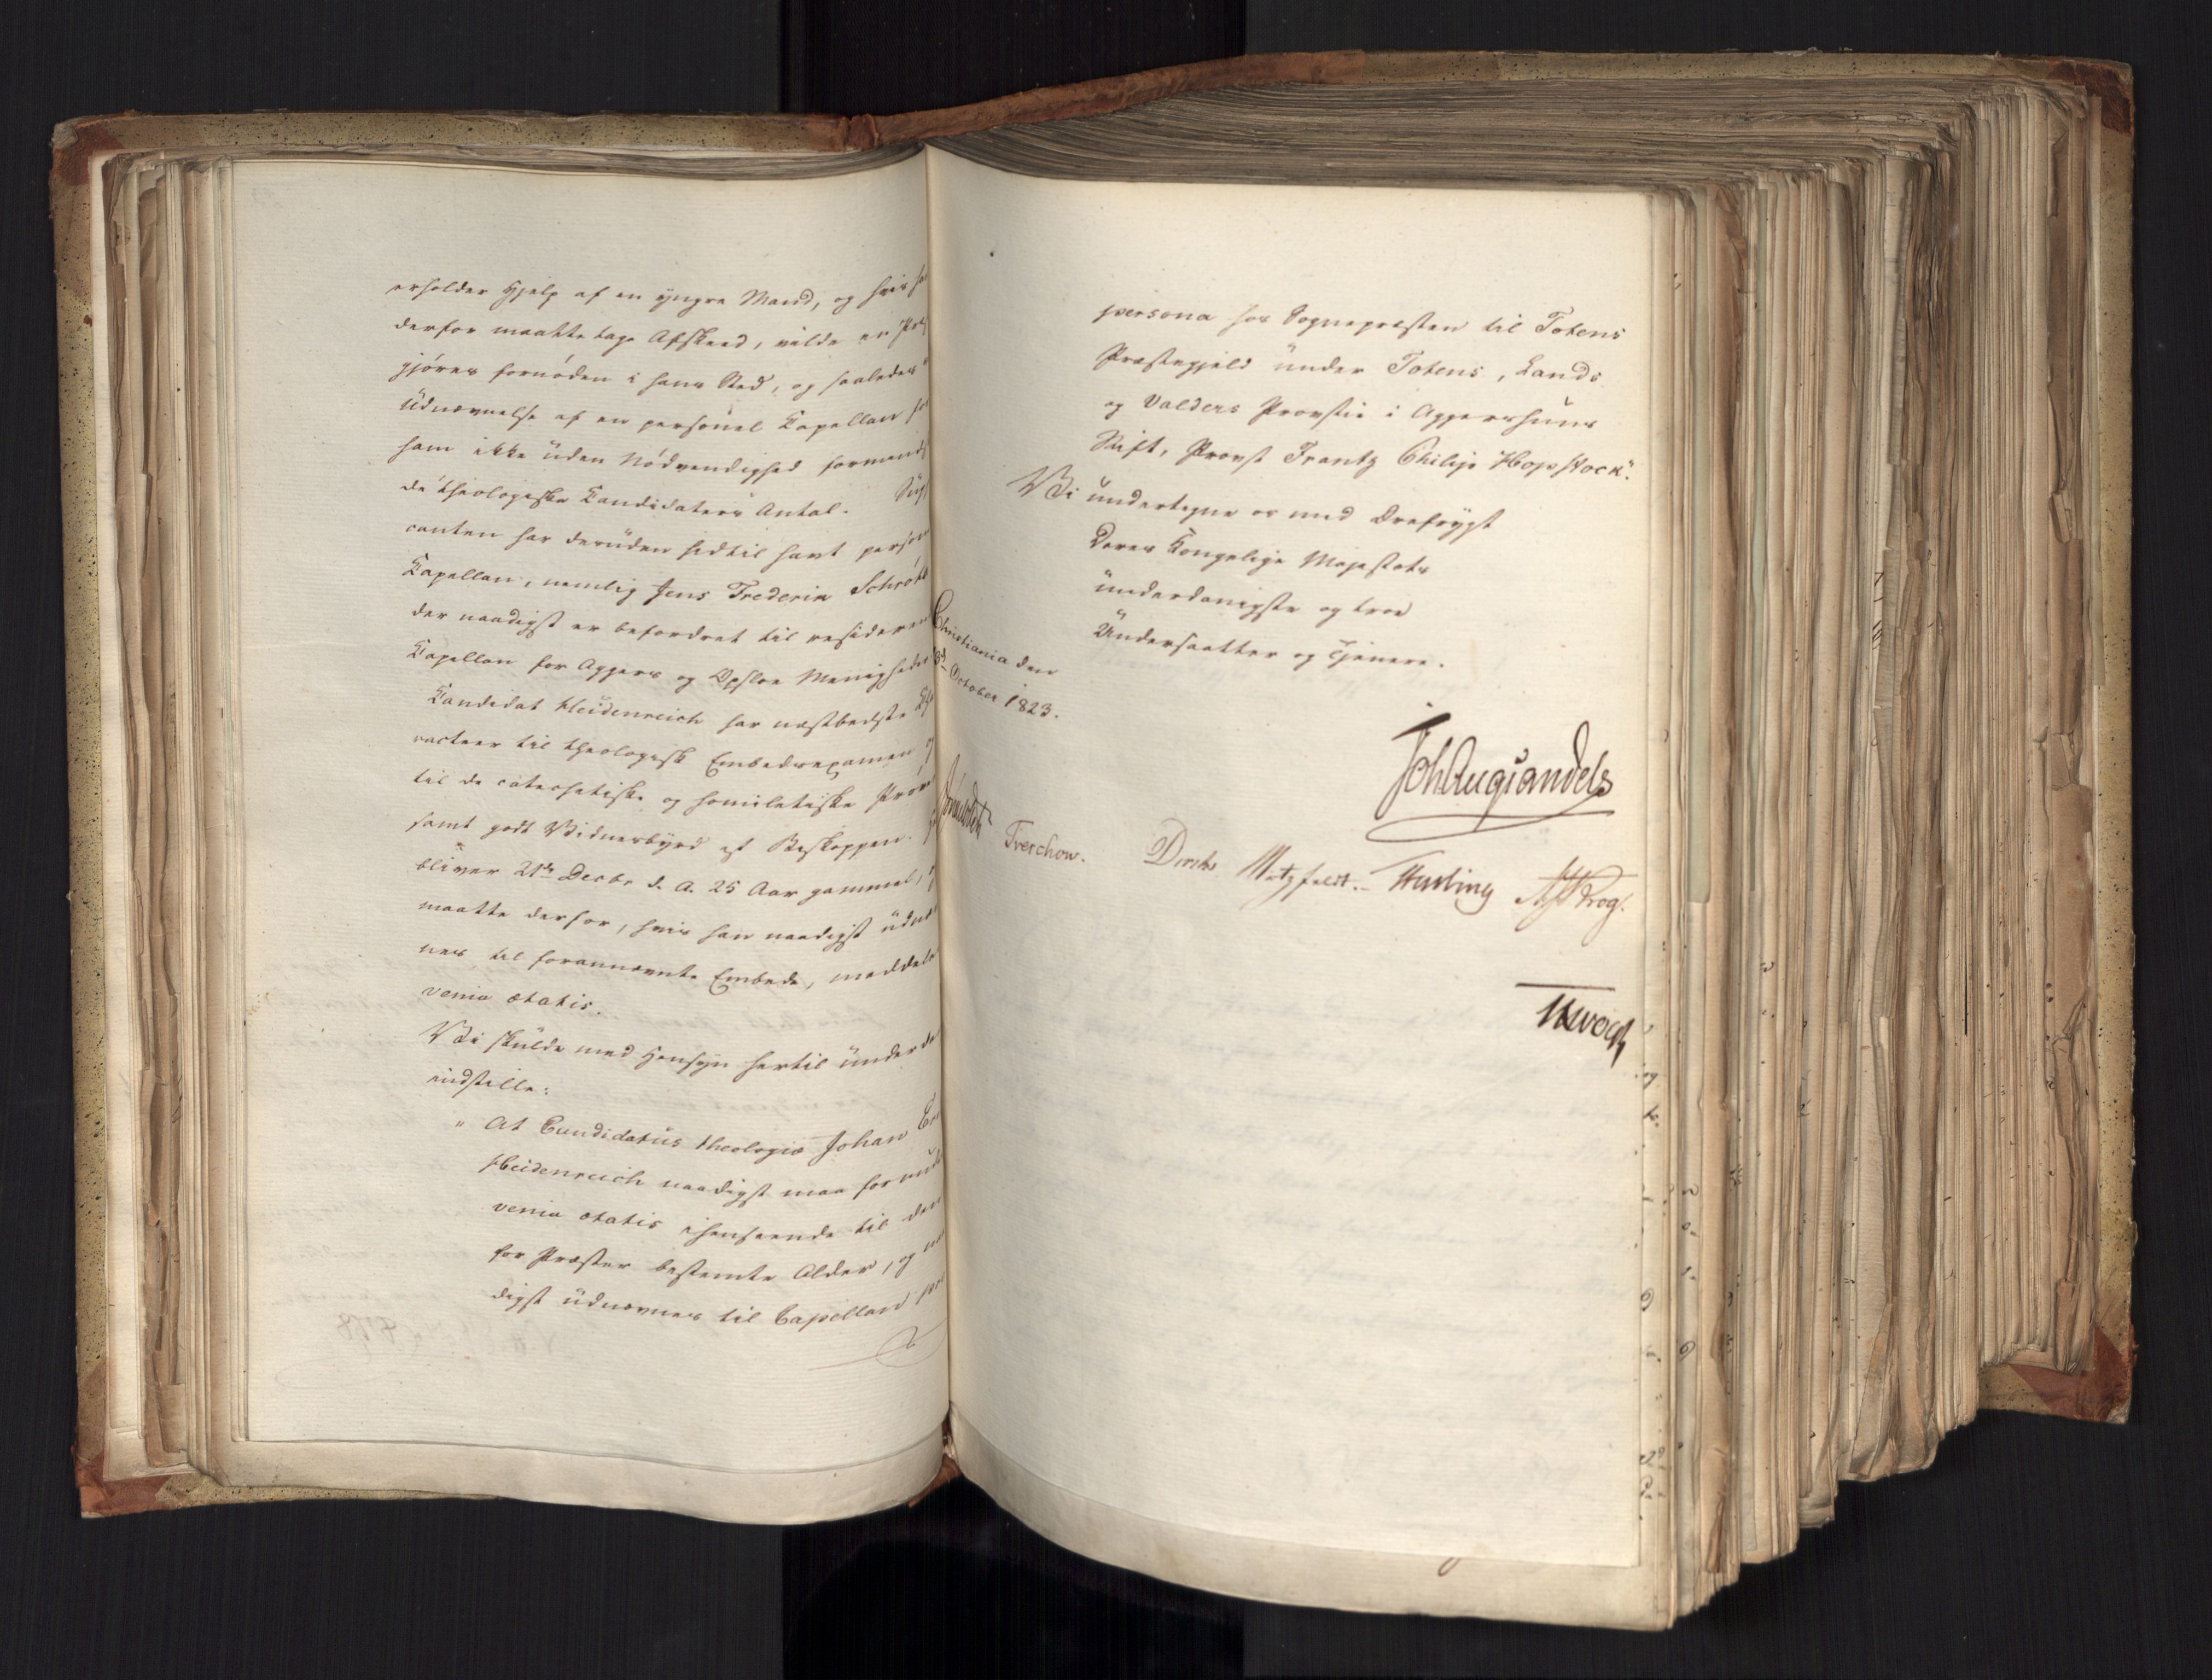 erholder Hjelp af en yngre Mand, og hvis
derfor maatte tage Afskeed, vilde en
gjøres fornøden i hans Sted, og saaledes
Udnævnelse af en personel Kapellan
ham ikke uden Nødvendighed
de theologiske Kandidaters Antal.
canten har desuden hidtil havt
Kapellan, nemlig Jens Frederik
der naadigst er befordret til
Kapellan for Aggers og Opsloe
Kandidat Heidenreich har næstbedste
racteer til theologisk Embedsexamen
til de catechetiske og homiletiske
samt godt Vidnesbyrd af Biskoppen.
bliver 21de Decbr d. A. 25 Aar gammel,
maatte derfor, hvis han naadigst
nes til forannævnte Embede, meddeles
venia ætatis.
Vi skulde med Hensyn hertil
indstille:
" At Candidatus theologiæ Johan
Heidenreich naadigst maa
venia ætatis ihenseende til den
for Præster bestemte Alder, og
digst udnævnes til Capellan
persona hos Sognepræsten til Totens
Præstegjeld under Totens, Lands
og Valders Provstie i Aggershuus
Stift, Provst Frantz Philip Hopstock".
Vi undertegne os med Ærefrygt
Deres Kongelige Majestæts
underdanigste og troe
Undersaatter og Tjenere.
Christiania den
October 1823.
Joh Aug Sandels
Treschow. Diriks Motzfeldt. Fasting Krog.
Vogt